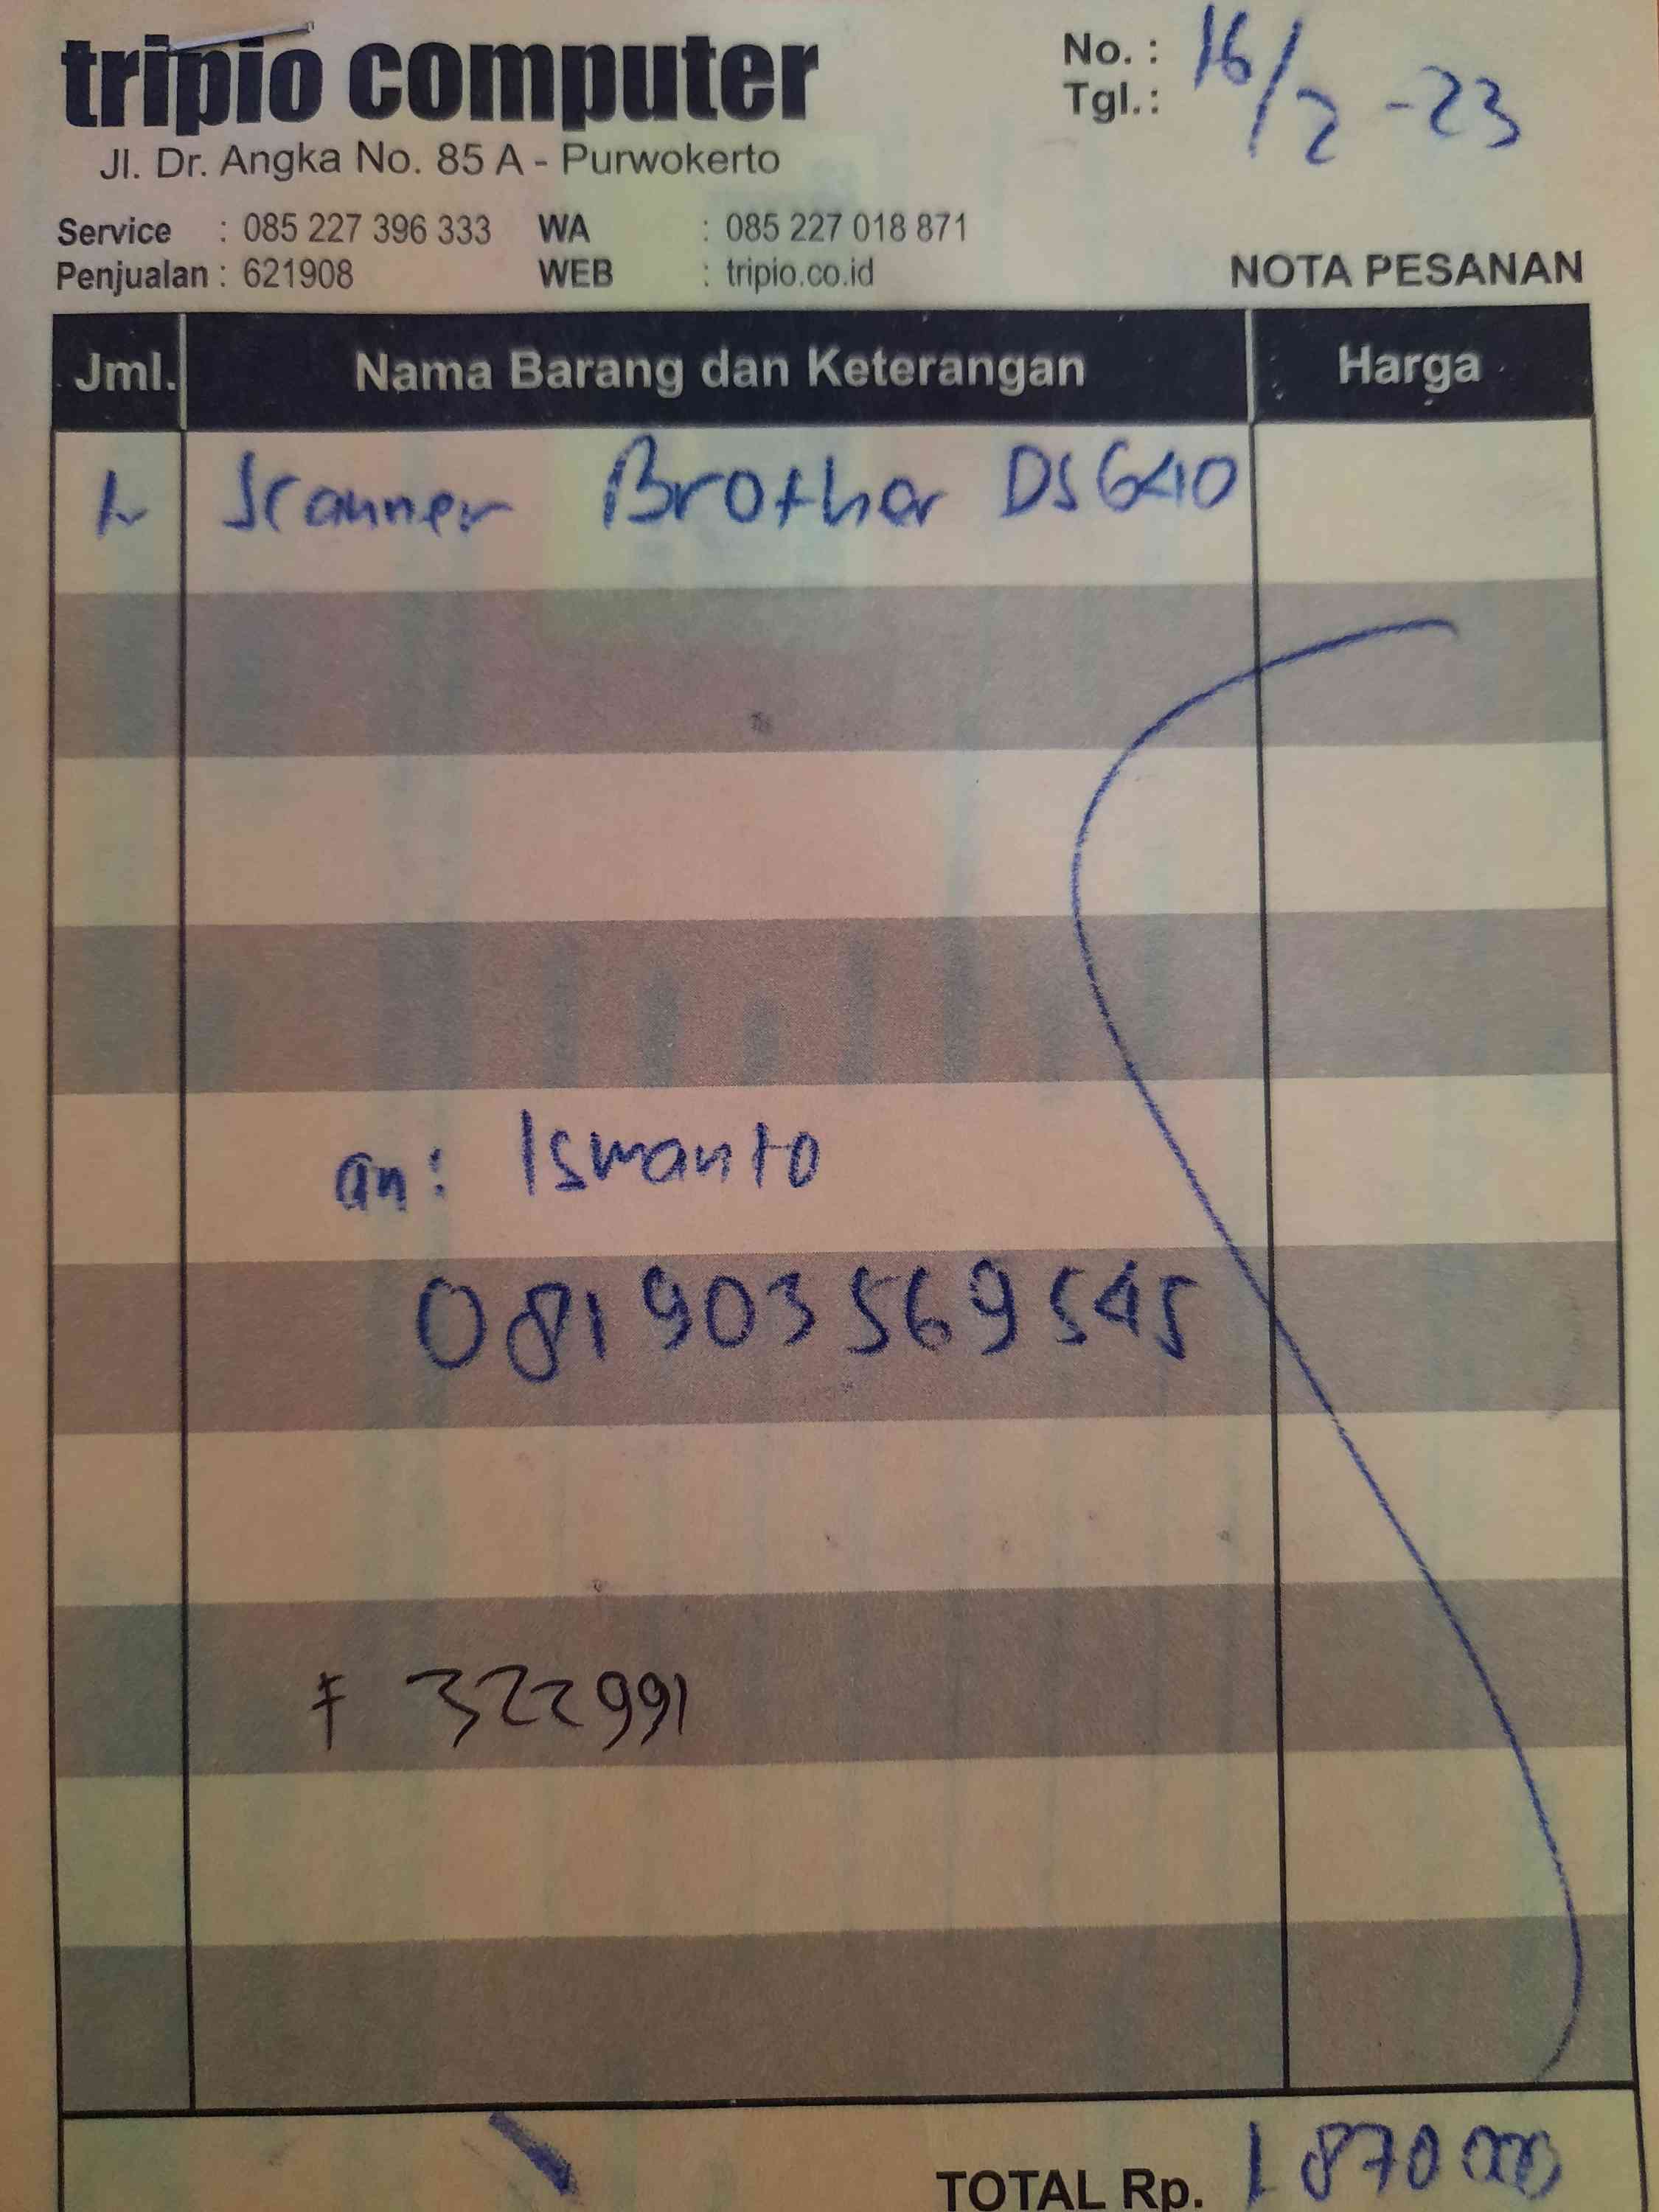 tripio computer
Jl. Dr. Angka No. 85 A - Purwokerto
Service : 085 227 396 333 WA : 085 227 018 871
Penjualan : 621908 WEB : tripio.co.id
No. :
Tgl. : 16/2 -23
NOTA PESANAN
Jml. Nama Barang dan Keterangan Harga
1 Scanner Brother DS640
an: Ismanto
081903569545
# 322991
TOTAL Rp. 1 870 000